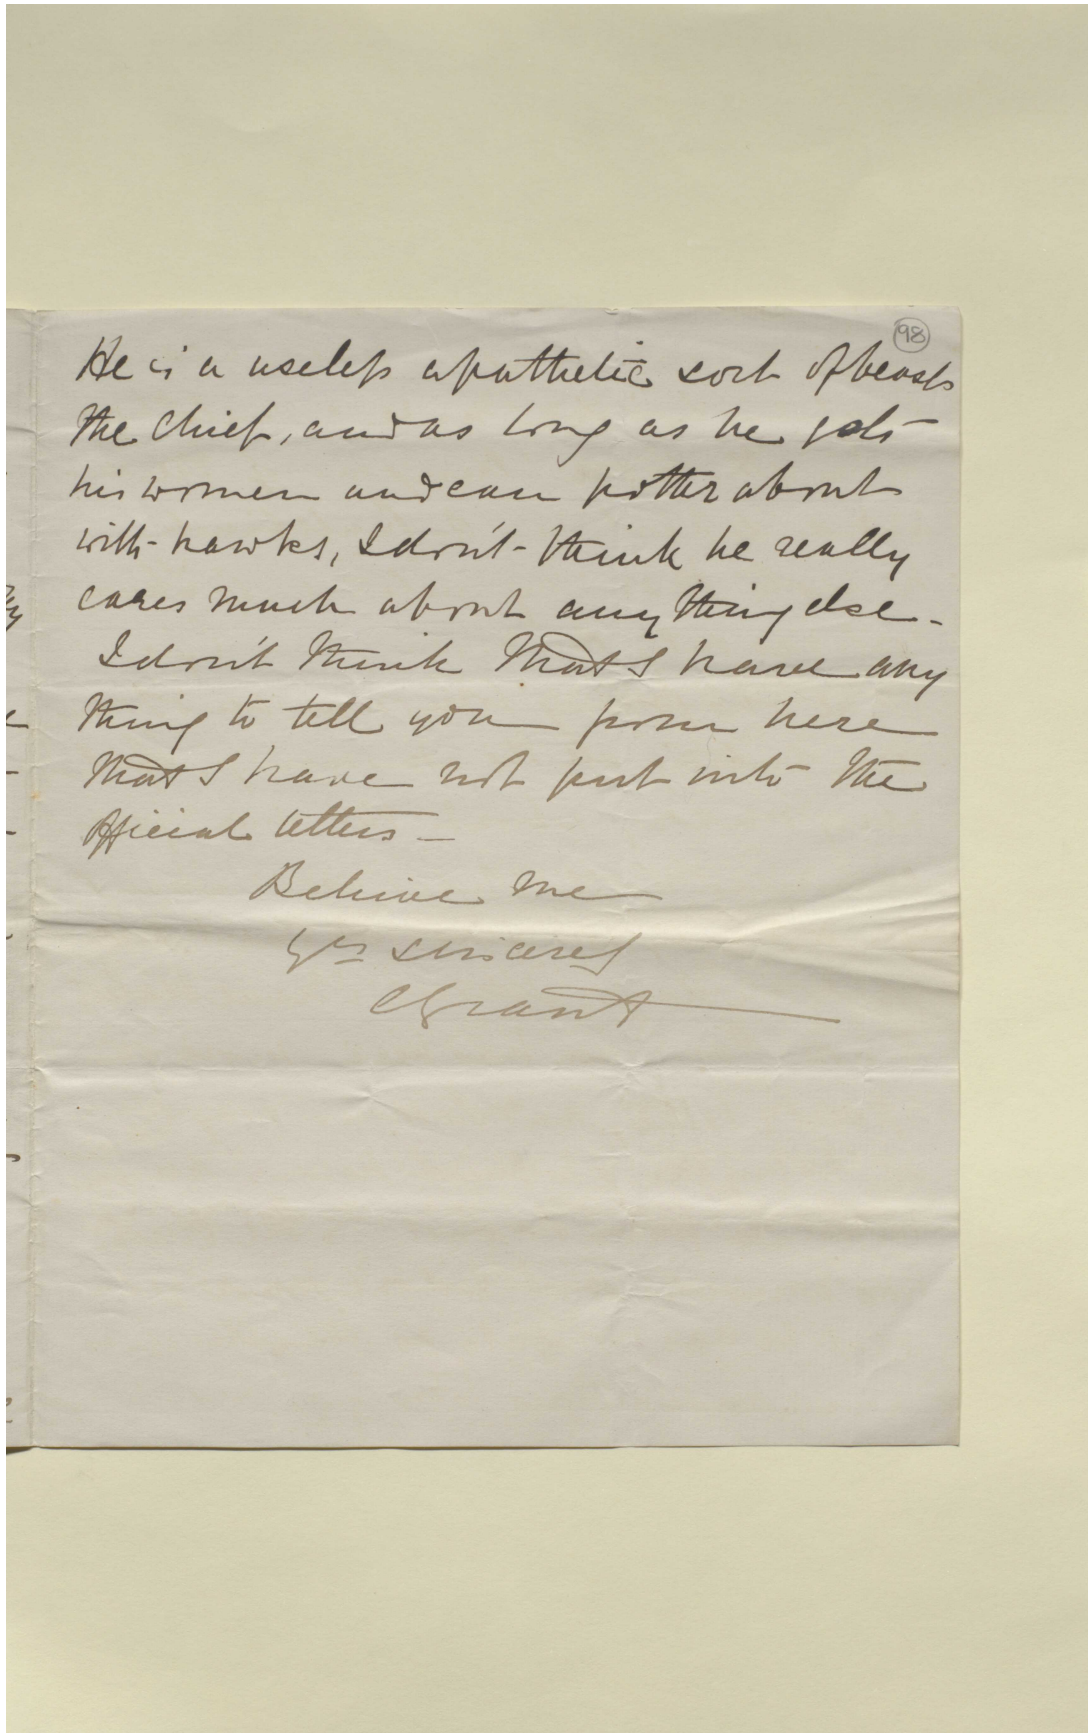 98
He is a useless apathetic sort of beast
the Chief, and as long as he gets
his women and can potter about
with hawks, I don't think he really
cares much about any thing else -
I don't think that I have any
thing to tell you from here
that I have not put into the
official letters -
Believe me
Yrs sincerely
C Grant